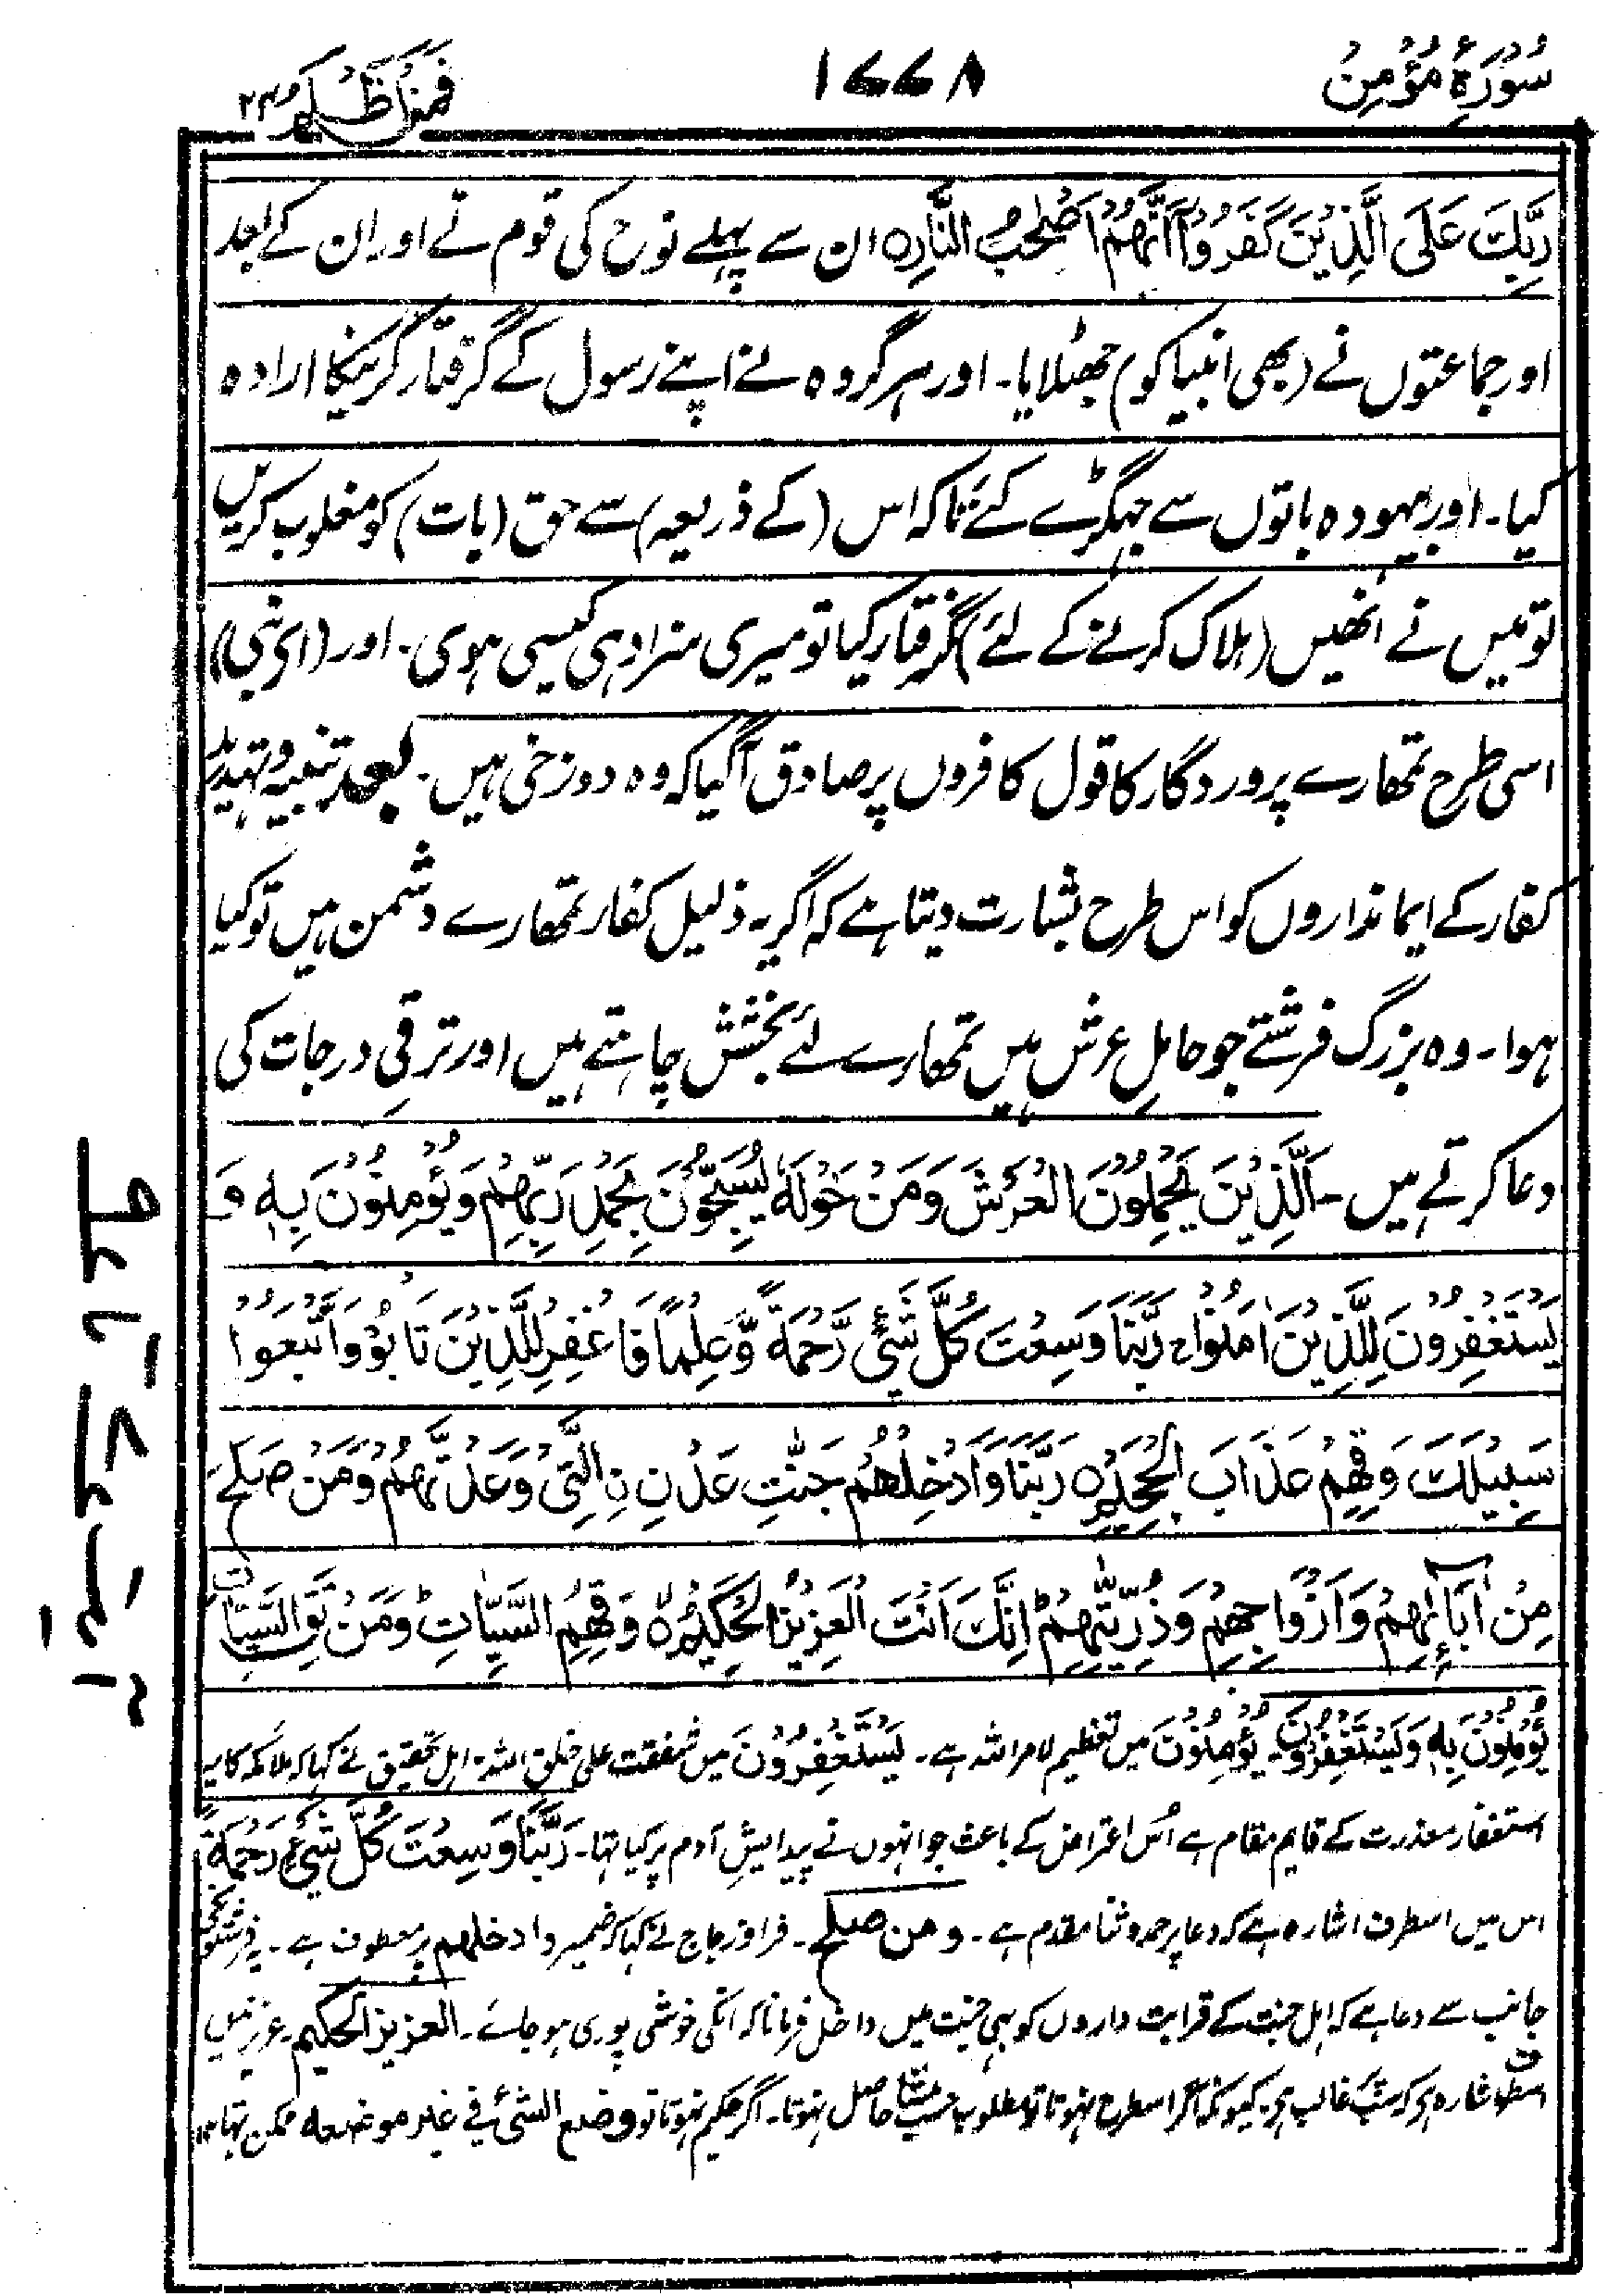 سُوْرَۂ مُؤْمِنْ
۱۷۷۸
فَمَنْ اَظْلَمُ ۲۴
رَبِّكَ عَلَى الَّذِيْنَ كَفَرُوْٓا اَنَّهُمْ اَصْحٰبُ النَّارِه ان سے پہلے نوح کی قوم نے اور ان کے بعد
اور جماعتوں نے (بھی انبیا کو) جھٹلایا۔ اور ہر گروہ نے اپنے رسول کے گرفتار کرنیکا ارادہ
کیا۔ اور بیہودہ باتوں سے جہگڑے کئے تاکہ اس (کے ذریعہ) سے حق (بات) کو مغلوب کریں
تو میں نے انھیں (ہلاک کرنے کے لئے) گرفتار کیا تو میری سزا دہی کیسی ہوی۔ اور (ای نبی)
اسی طرح تمھارے پروردگار کا قول کافروں پر صادق آگیا کہ وہ دوزخی ہیں۔ بعد تنبیہ و تہدید
کفار کے ایمانداروں کو اس طرح بشارت دیتا ہے کہ اگر یہ ذلیل کفار تمھارے دشمن ہیں تو کیا
ہوا۔ وہ بزرگ فرشتے جو حاملِ عرش ہیں تمھارے لئے بخشش چاہتے ہیں اور ترقیِ درجات کی
دعا کرتے ہیں۔ اَلَّذِيْنَ يَحْمِلُوْنَ الْعَرْشَ وَمَنْ حَوْلَهٗ يُسَبِّحُوْنَ بِحَمْدِ رَبِّهِمْ وَيُؤْمِنُوْنَ بِهٖ وَ
يَسْتَغْفِرُوْنَ لِلَّذِيْنَ اٰمَنُوْا ج رَبَّنَا وَسِعْتَ كُلَّ شَيْءٍ رَّحْمَةً وَّعِلْمًا فَاغْفِرْ لِلَّذِيْنَ تَابُوْا وَاتَّبَعُوْا
سَبِيْلَكَ وَقِهِمْ عَذَابَ الْجَحِيْمِه رَبَّنَا وَاَدْخِلْهُمْ جَنّٰتِ عَدْنِ نِ الَّتِيْ وَعَدْتَّهُمْ وَمَنْ صَلَحَ
مِنْ اٰبَآئِهِمْ وَاَزْوَاجِهِمْ وَذُرِّيّٰتِهِمْ ط اِنَّكَ اَنْتَ الْعَزِيْزُ الْحَكِيْمُه لا وَقِهِمُ السَّيِّاٰتِ ط وَمَنْ تَقِ السَّيِّاٰتِ
يُؤْمِنُوْنَ بِهٖ وَيَسْتَغْفِرُوْنَ۔ يُؤْمِنُوْنَ میں تعظیم لامر اللہ ہے۔ يَسْتَغْفِرُوْنَ میں شفقت علی خلق اللہ۔ اہل تحقیق نے کہا کہ ملائکہ کا یہ
استغفار معذرت کے قایم مقام ہے اُس اعتراض کے باعث جو انہوں نے پیدایشِ آدم پر کیا تہا۔ رَبَّنَا وَسِعْتَ كُلَّ شَيْءٍ رَحْمَةً
اس میں اسطرف اشارہ ہے کہ دعا پر حمد و ثنا مقدم ہے۔ ومن صلح۔ فرا و زجاج نے کہا کہ ضمیر وادخلهم پر معطوف ہے۔ یہ فرشتوں کی
جانب سے دعا ہے کہ اہل جنت کے قرابت داروں کو بہی جنت میں داخل فرمانا کہ انکی خوشی پوری ہو جائے۔ العزيز الحكيم۔ عزیز میں
اسطرف اشارہ ہی کہ سب پر غالب ہی۔ کیونکہ اگر اسطرح نہوتا تو مطلوب حسب حاصل نہوتا۔ اگر حکیم نہوتا تو وضع الشئ في غير موضعه ممکن تہا ۱۲